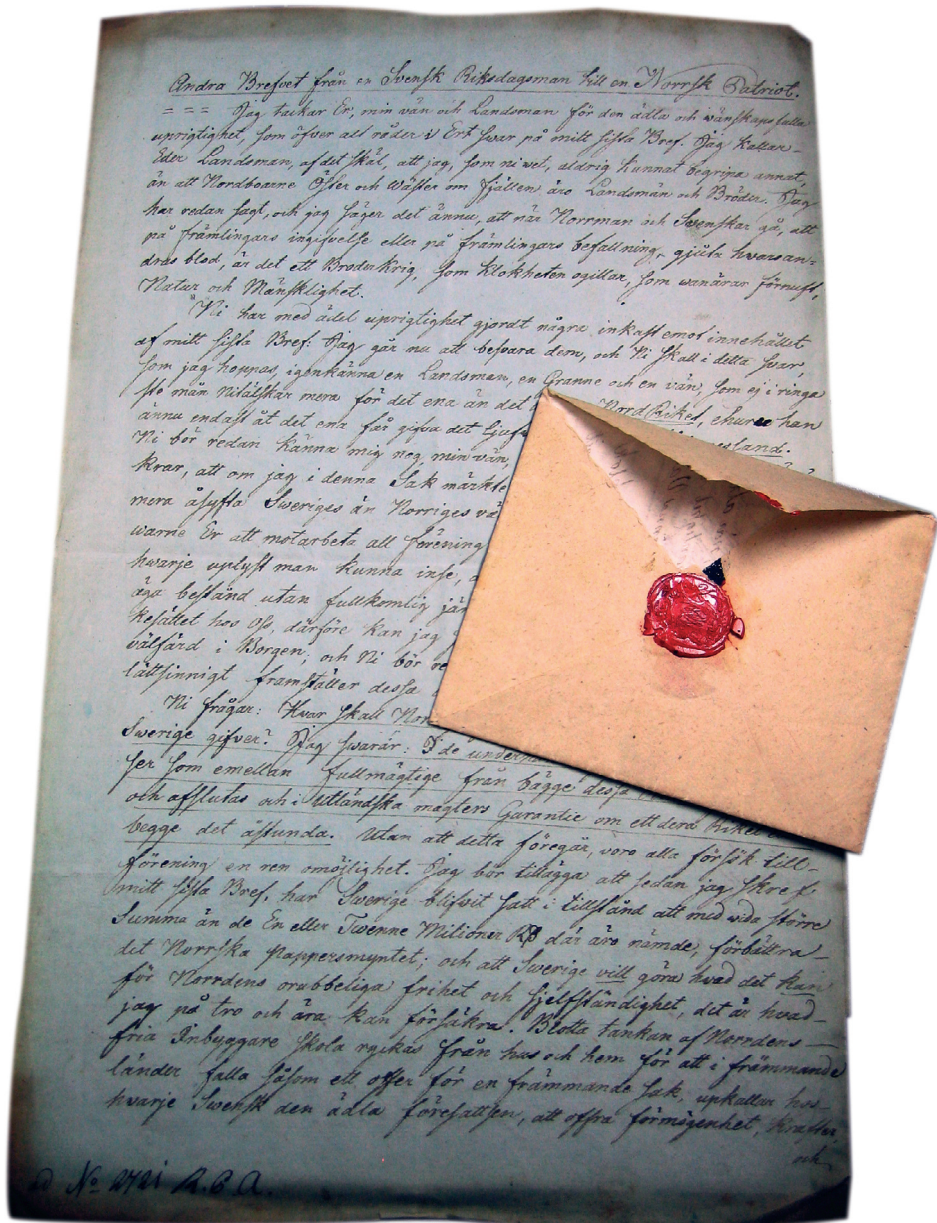 Andra Brefvet från en Svensk Riksdagsman till en Norrsk Patriot.
= = = Jag tackar Er, min vän och Landsman för den ädla och wänskapsfulla
uprigtighet, som öfver alt råder i Ert swar på mitt sista Bref. Jag kallar
Eder Landsman, af det skäl, att jag, som ni wet, aldrig kunnat begripa annat,
än att Nordboarne Öster och Wäster om fjällen äro Landsmän och Bröder. Jag
har redan sagt, och jag säger det ännu, att när Norrman och Swenskar gå, att
på främlingars ingifvelse eller på främlingars befallning, gjuta hwarsan=
dras blod, är det ett Broderkrig, som klokheten ogillar, som wanärar förnuft,
Natur och Mänsklighet.
Ni har med ädel uprigtighet gjordt några inkast emot innehållet
af mitt sista Bref. Jag går nu att besvara dem, och Ni skall i detta svar,
som jag hoppas, igenkänna en Landsman, en Granne och en vän, som ej i ringa
ste mån nitälskar mera för det ena än det Nord Riket, ehuru han
ännu endast åt det ena får gifva det ljufv
Ni bör redan känna mig nog, min vän
krar, att om jag i denna Sak märkte
mera åsyfta Sweriges än Norriges vä
warne Er att motarbeta all förening
hwarje uplyst man kunna inse, a
äga bestånd utan fullkomlig jäm
kesättet hos Oss, därföre kan jag
välfärd i Borgen; och Ni bör re
lättsinnigt framställer dessa
Ni frågar: Hvar skall Nor
Swerige gifver? Jag swarar: I de underh
ser som emellan fullmägtige från bägge dessa
och afslutas och i Utländska magters Garantie om ettdera Riket
begge det åstunda. Utan att detta föregår, voro alla försök till
förening en ren omöjlighet. Jag bör tillägga att sedan jag skref
mitt sista Bref, har Swerige blifvit satt i tillstånd att med vida större
Summa än de En eller Twenne Milioner där äro nämde, förbättra
det Norrska Pappersmyntet; och att Swerige vill göra hvad det kan
för Nordens orubbeliga frihet och sjelfständighet, det är hvad
jag på tro och ära kan försäkra. Blotta tankan af Nordens
fria Inbyggare skola ryckas från hus och hem för att i främmande
länder falla såsom ett offer för en främmande sak, upkallar hos
hwarje Swensk den ädla föresattsen, att offra förmögenhet, krafter,
och
No 2721 R. P. A.